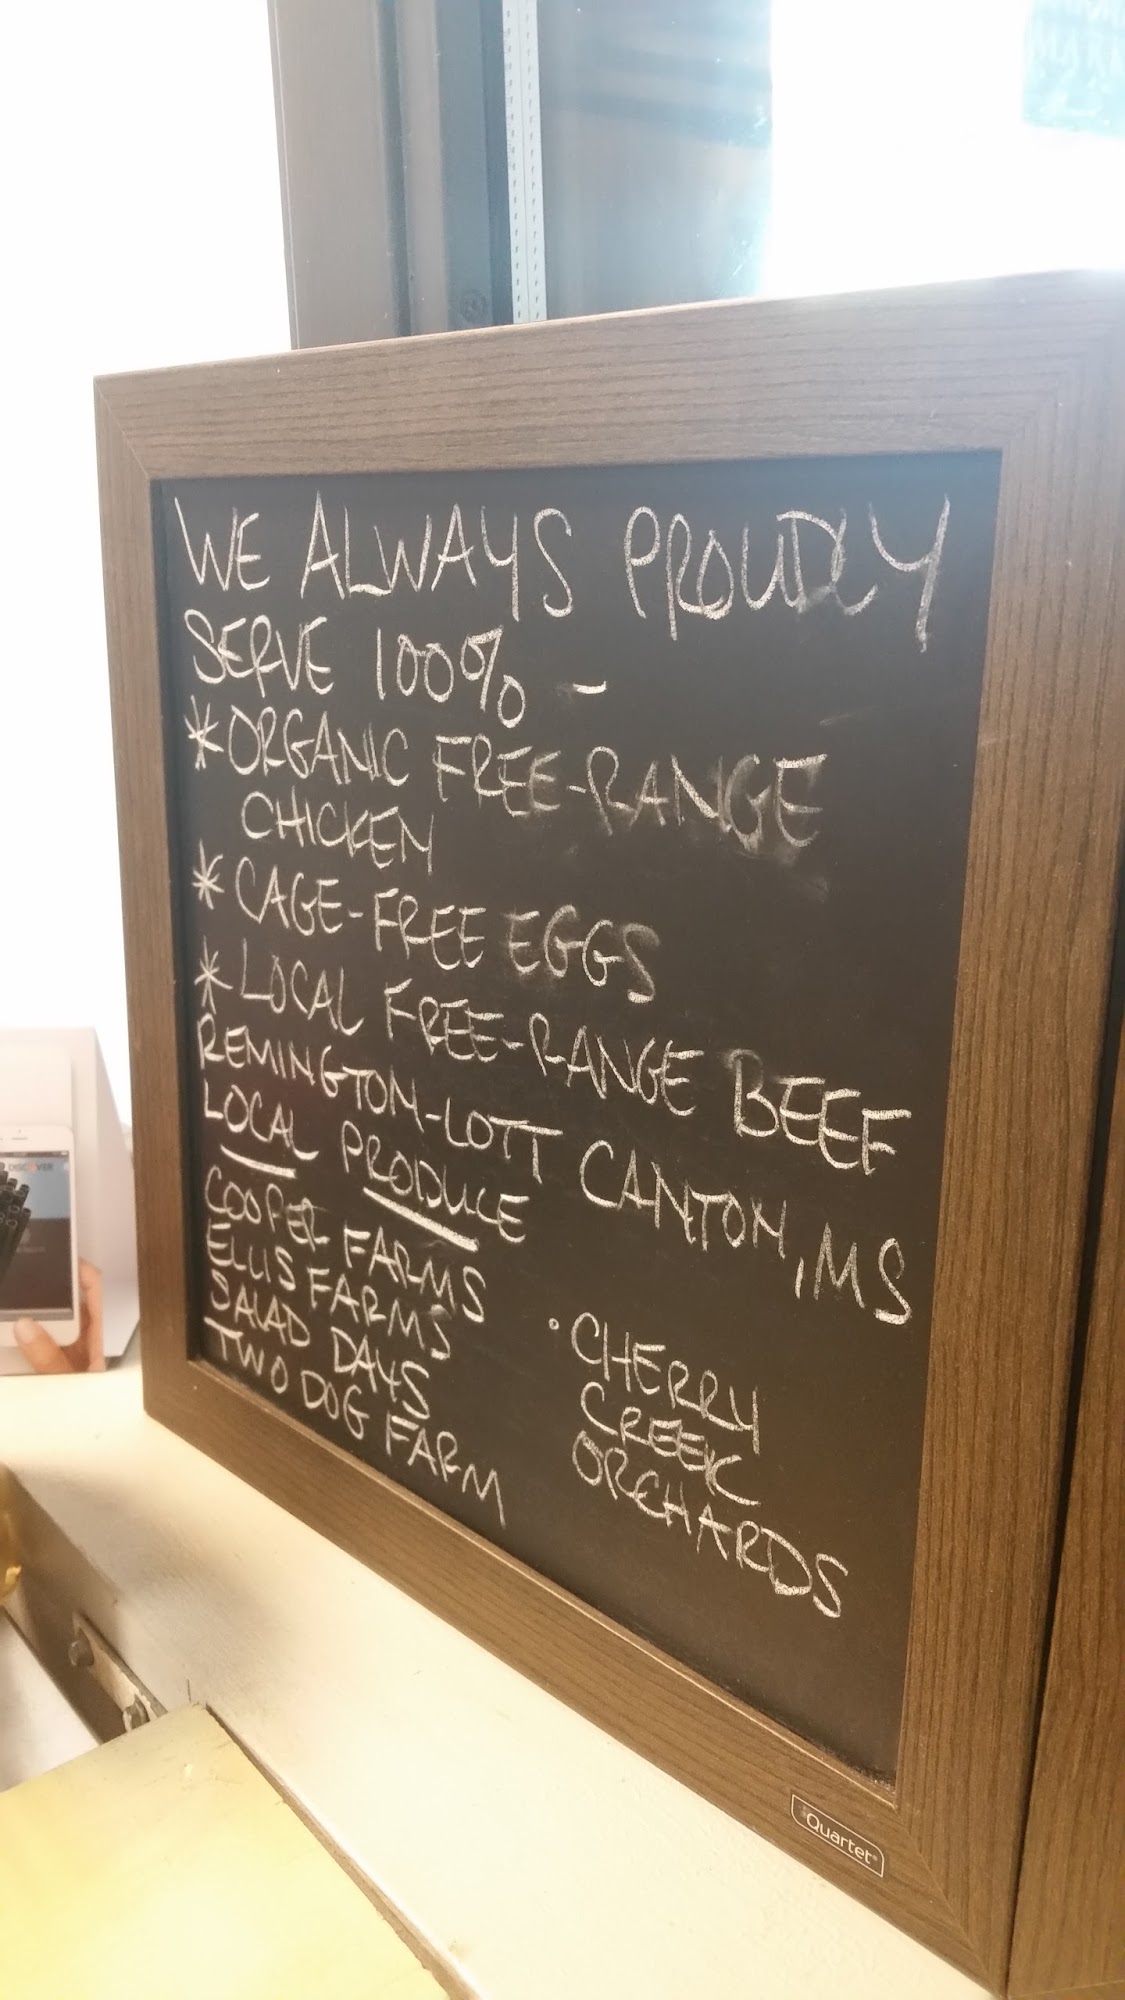 WE ALWAYS PROUDLY
SERVE 100% -
* ORGANIC FREE-RANGE
CHICKEN
* CAGE-FREE EGGS
* LOCAL FREE-RANGE BEEF
REMINGTON-LOTT CANTON, MS
LOCAL PRODUCE
COOPER FARMS
ELLIS FARMS
SALAD DAYS
TWO DOG FARM
• CHERRY
CREEK
ORCHARDS
Quartet
DISCOVER